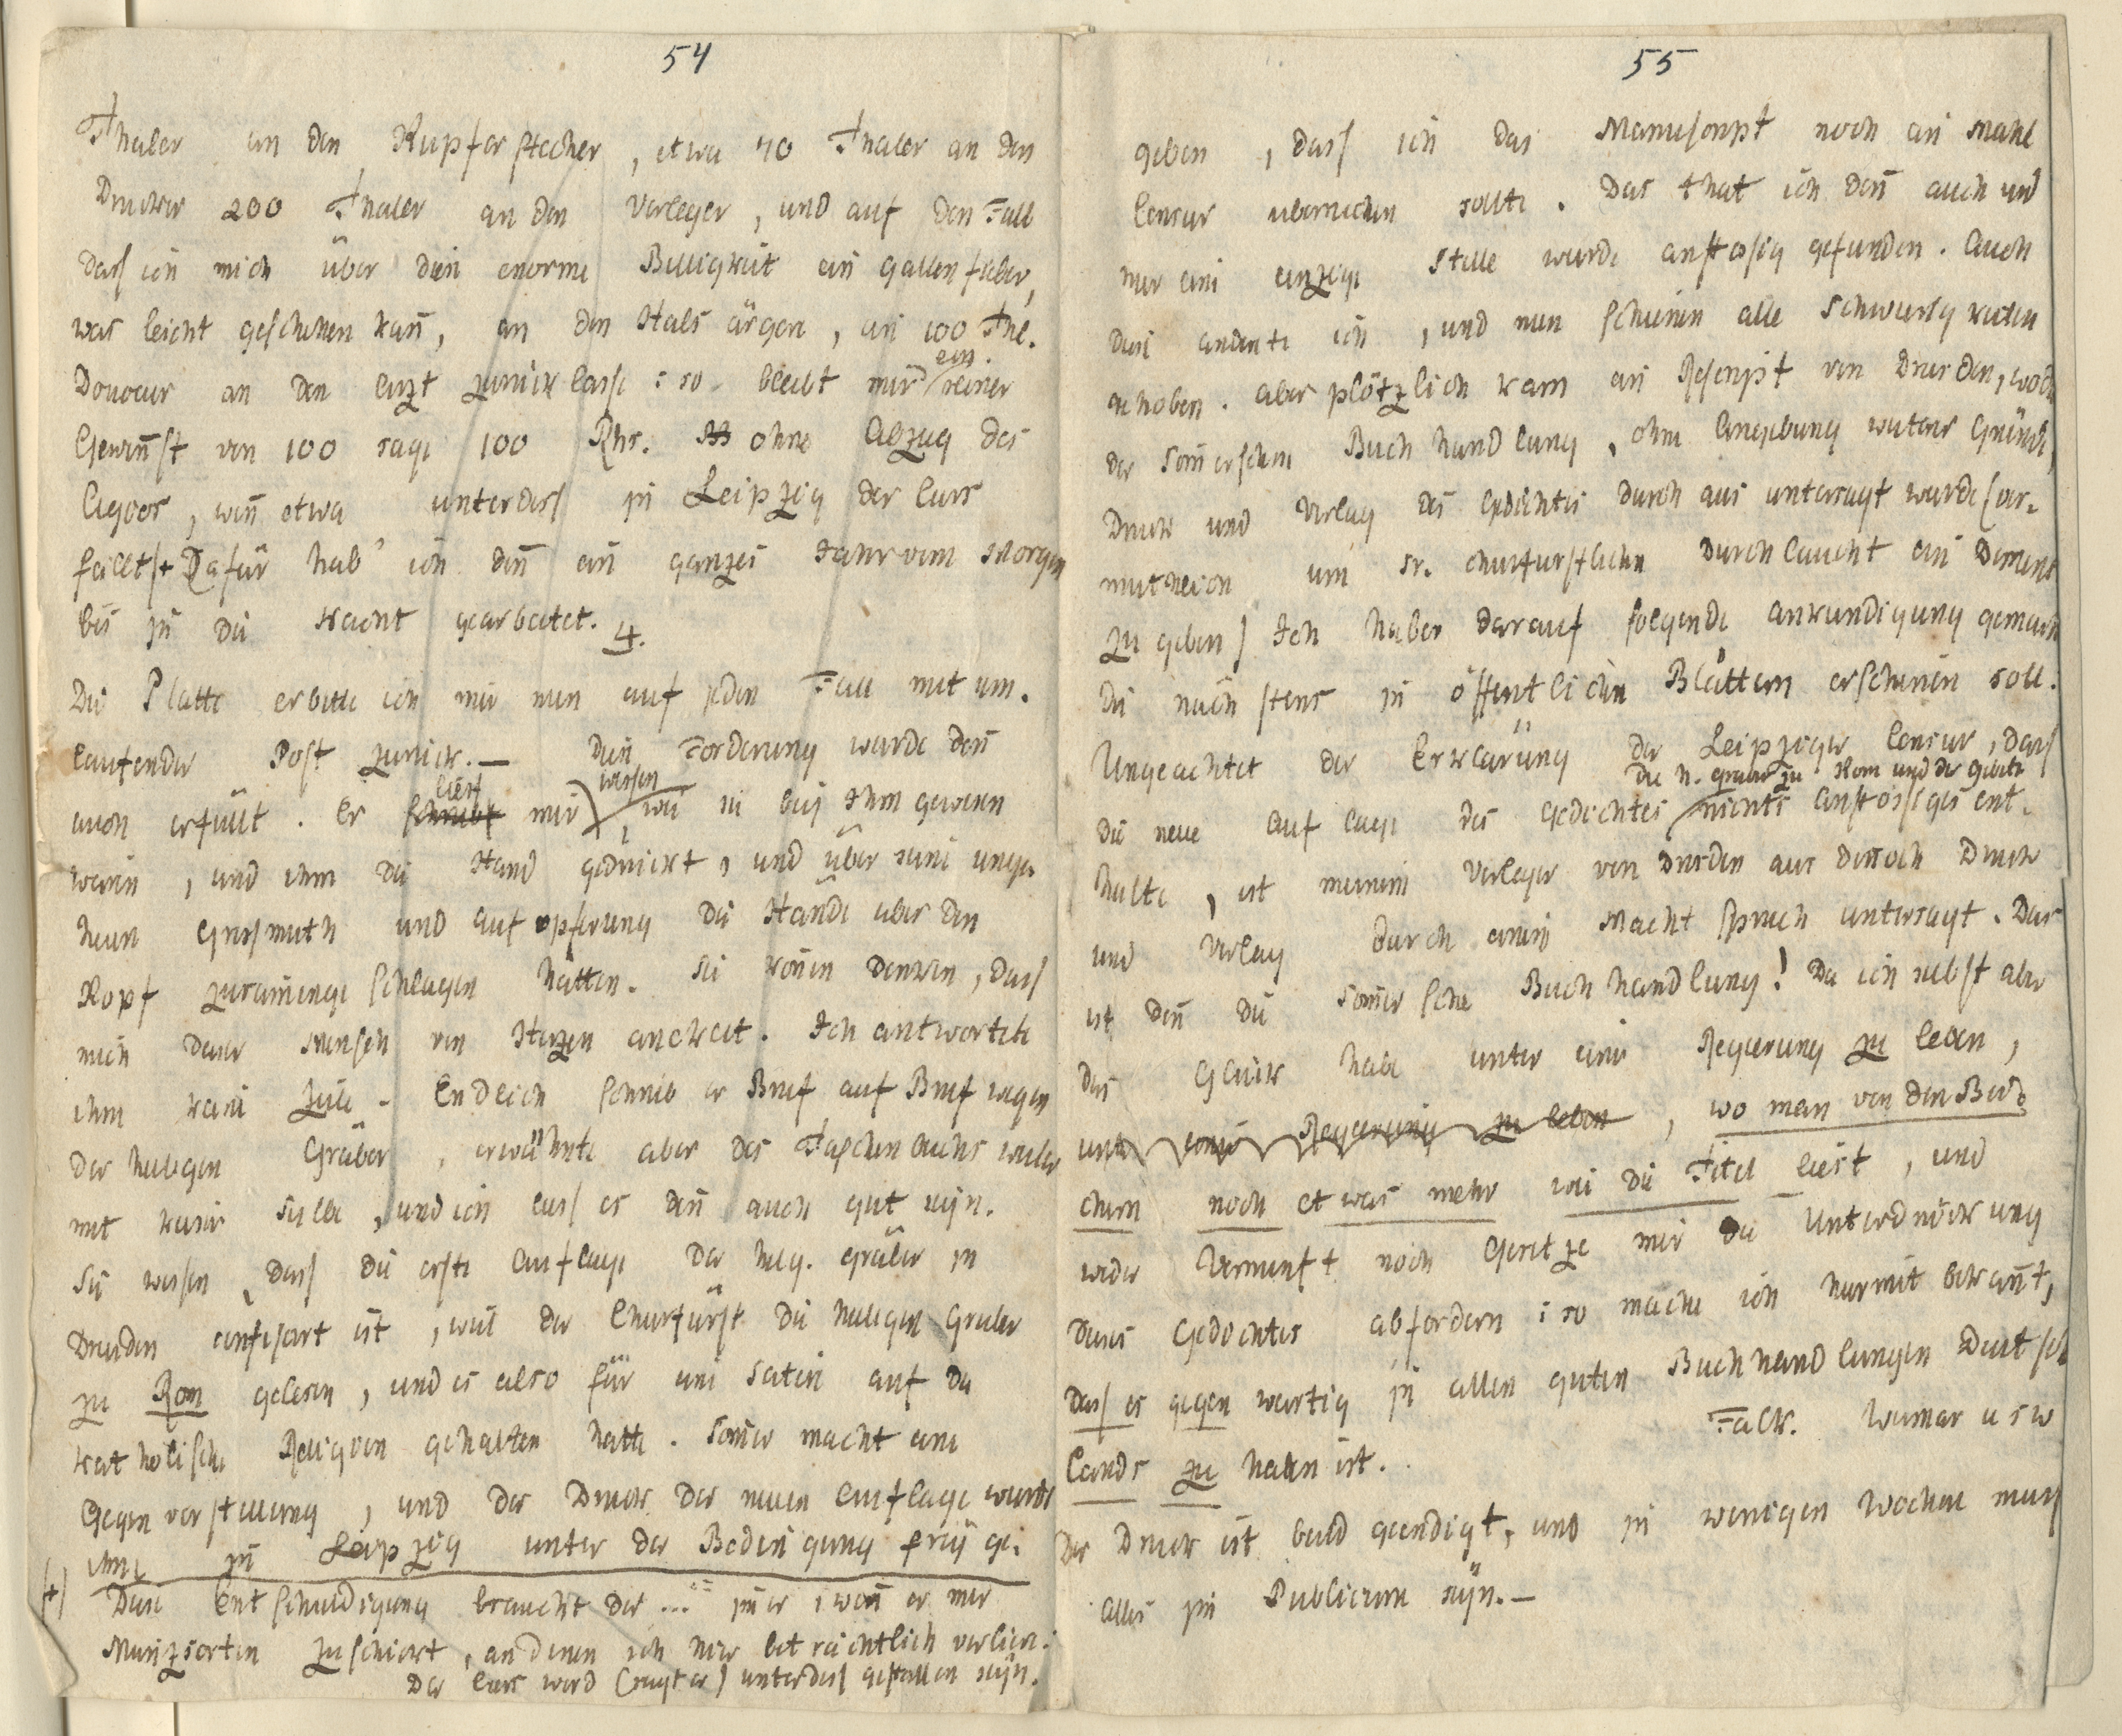 54
Thaler an den Kupferstecher, etwa 70 Thaler an den
Drucker 200 Thaler an den Verleger, und auf den Fall
dass ich mich über diese enorme Billigkeit ein Gallenfieber,
was leicht geschehen kañ, an den Hals ärgere, ein 100 Thl.
Douceur an den Arzt zurücklasse: so bleibt mir ein reiner
Gewiñst von 100 sage 100 Rhr. ohne Abzug des
Agios, weñ etwa unterdess in Leipzig der Curs
fällt + Dafür hab' ich deñ ein ganzes Jahr vom Morgen
bis in die Nacht gearbeitet. 4.
Die Platte erbitte ich mir nun auf jeden Fall mit um.
laufender Post zurück.— Diese Forderung wurde deñ
auch erfüllt. Er schreibt liess mir wissen, wie sie bey Ihm gewesen
wären, und ihm die Hand gedrückt, und über seine unge¬
heure Grossmuth und Aufopferung die Hände über den
Kopf zusam̄engeschlagen hätten. Sie kön̄en denken, dass
mich dieser Mensch von Herzen anekelt. Ich antwortete
ihm keine Zeile – Endlich schrieb er Brief auf Brief wegen
der heiligen Gräber, erwähnte aber des Taschenbuchs weiter
mit keiner Silbe, und ich lass es deñ auch gut seyn.
Sie wissen, dass die erste Auflage der heilg. Gräber in
Dresden confiscirt ist, weil der Churfürst die heiligen Gräber
zu Rom gelesen, und es also für eine Satire auf die
katholische Religion gehalten hatte. Som̄er macht eine
Gegenvorstellung, und der Druck der neuen Auflage wurde
ihm in Leipzig unter der Bedingung frey ge¬
+) Diese Entschuldigung braucht der ... im̄er, weñ er mir
Münzsorten zuschickt, an denen ich hier beträchtlich verliere.
Der Curs wird (sagt er) unterdess gefallen seyn.
55
geben, dass ich das Manuscript noch ein Mahl
Censur überreichen sollte. Das that ich deñ auch und
nur eine einzige Stelle wurde anstössig gefunden. Auch
diese änderte ich, und nun schienen alle Schwierigkeiten
gehoben. Aber plötzlich kam ein Rescript von Dresden, wodu
der Som̄erschen Buchhandlung, ohne Angebung weiterer Gründe,
Druck und Verlag des Gedichtes durchaus untersagt wurde (ver¬
muthlich um Sr. churfürstlichen Durchlaucht ein Dementi
zu geben) Ich habe darauf folgende Ankündigung gemacht
die nächstens in öffentlichen Blättern erscheinen soll.
Ungeachtet der Erklärung der Leipziger Censur, dass
die neue Auflage des Gedichtes die h. Gräber zu Kom und die Gebete nichts Anstössiges ent¬
halte, ist meinem Verleger von Dresden aus deñoch Druck
und Verlag durch einen Machtspruch untersagt. Das
ist deñ die Som̄ersche Buchhandlung! Da ich selbst aber
das Glück habe unter einer Regierung zu leben,
unter einer Regierung zu leben, wo man von den Bü¬
chern noch etwas mehr wie die Titel liest, und
weder Vernunft noch Gesetze mir die Unterdrückung
dieses Gedichtes abfordern: so mache ich hiermit bekañt,
dass es gegenwärtig in allen guten Buchhandlungen Deutsch
lands zu haben ist. Falk. Weimar u s w
Der Druck ist bald geendigt, und in wenigen Wochen muss
alles im Publicum seyn.—